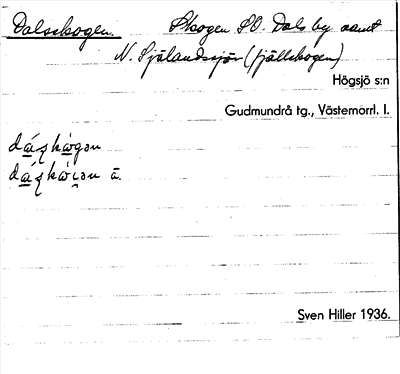 Dalsskogen. Skogen SO. Dals by samt
N. Själandssjön (fjällskogen)
Högsjö s:n
Gudmundrå tg., Västernorrl. l.
ā.
Sven Hiller 1936.